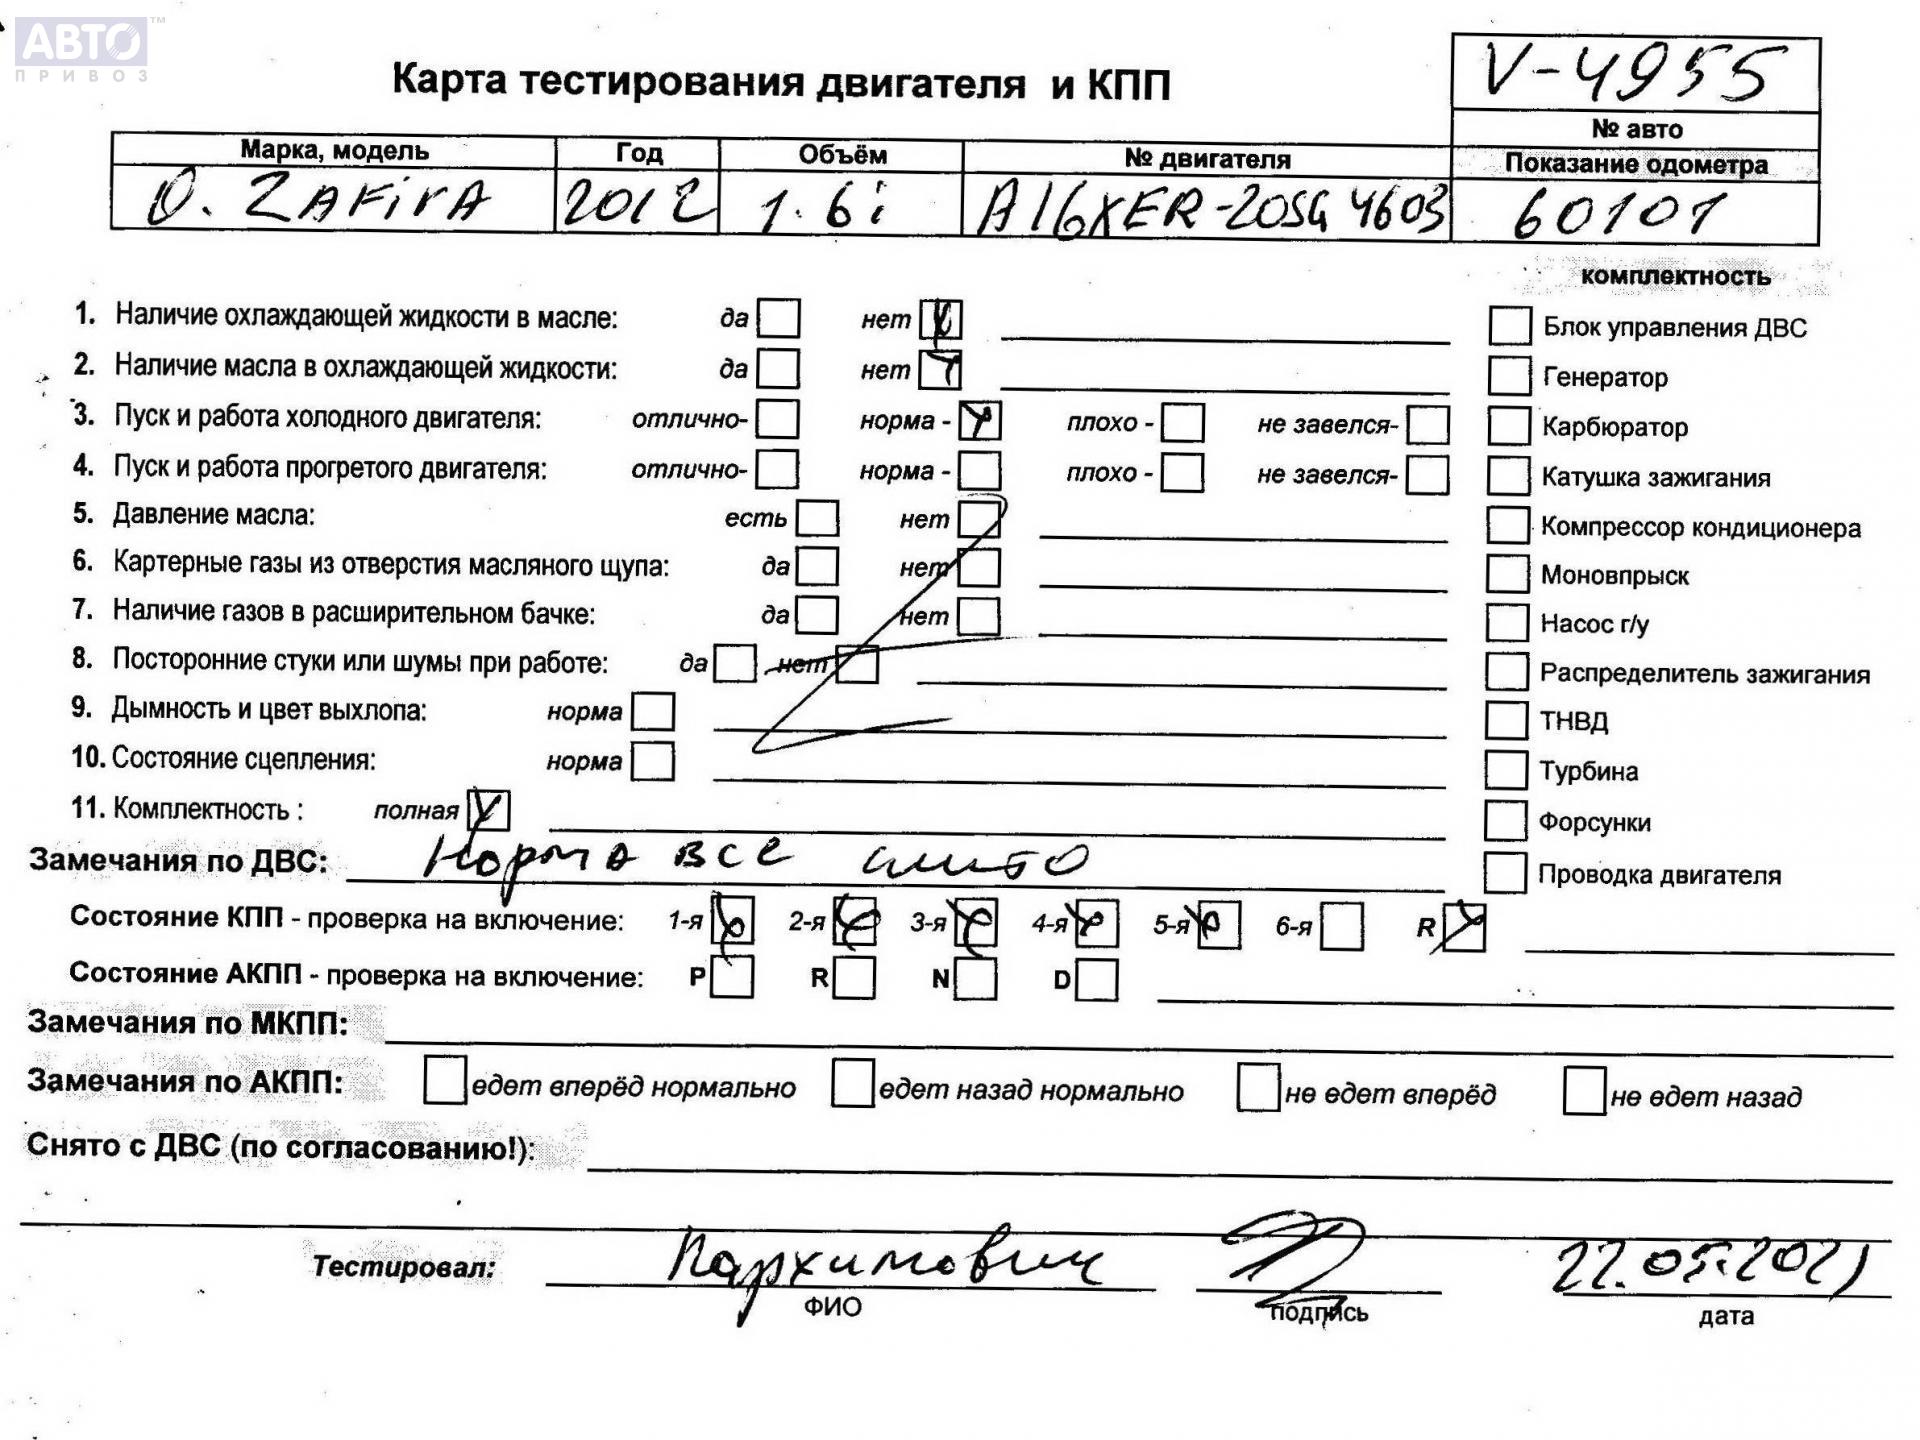 АВТО™
ПРИВОЗ
Карта тестирования двигателя и КПП
V-4955
№ авто
Марка, модель Год Объём № двигателя Показание одометра
O. ZAFirA 2012 1.6i A16XER-20SG4603 60101
комплектность
1. Наличие охлаждающей жидкости в масле: да нет
Блок управления ДВС
2. Наличие масла в охлаждающей жидкости: да нет
Генератор
3. Пуск и работа холодного двигателя: отлично- норма - плохо - не завелся-
Карбюратор
4. Пуск и работа прогретого двигателя: отлично- норма - плохо - не завелся-
Катушка зажигания
5. Давление масла: есть нет
Компрессор кондиционера
6. Картерные газы из отверстия масляного щупа: да нет
Моновпрыск
7. Наличие газов в расширительном бачке: да нет
Насос г/у
8. Посторонние стуки или шумы при работе: да нет
Распределитель зажигания
9. Дымность и цвет выхлопа: норма
ТНВД
10. Состояние сцепления: норма
Турбина
11. Комплектность : полная
Форсунки
Замечания по ДВС: Норма все слито
Проводка двигателя
Состояние КПП - проверка на включение: 1-я 2-я 3-я 4-я 5-я 6-я R
Состояние АКПП - проверка на включение: P R N D
Замечания по МКПП:
Замечания по АКПП: едет вперёд нормально едет назад нормально не едет вперёд не едет назад
Снято с ДВС (по согласованию!):
Тестировал: Пархимович 22.05.2021
ФИО подпись дата